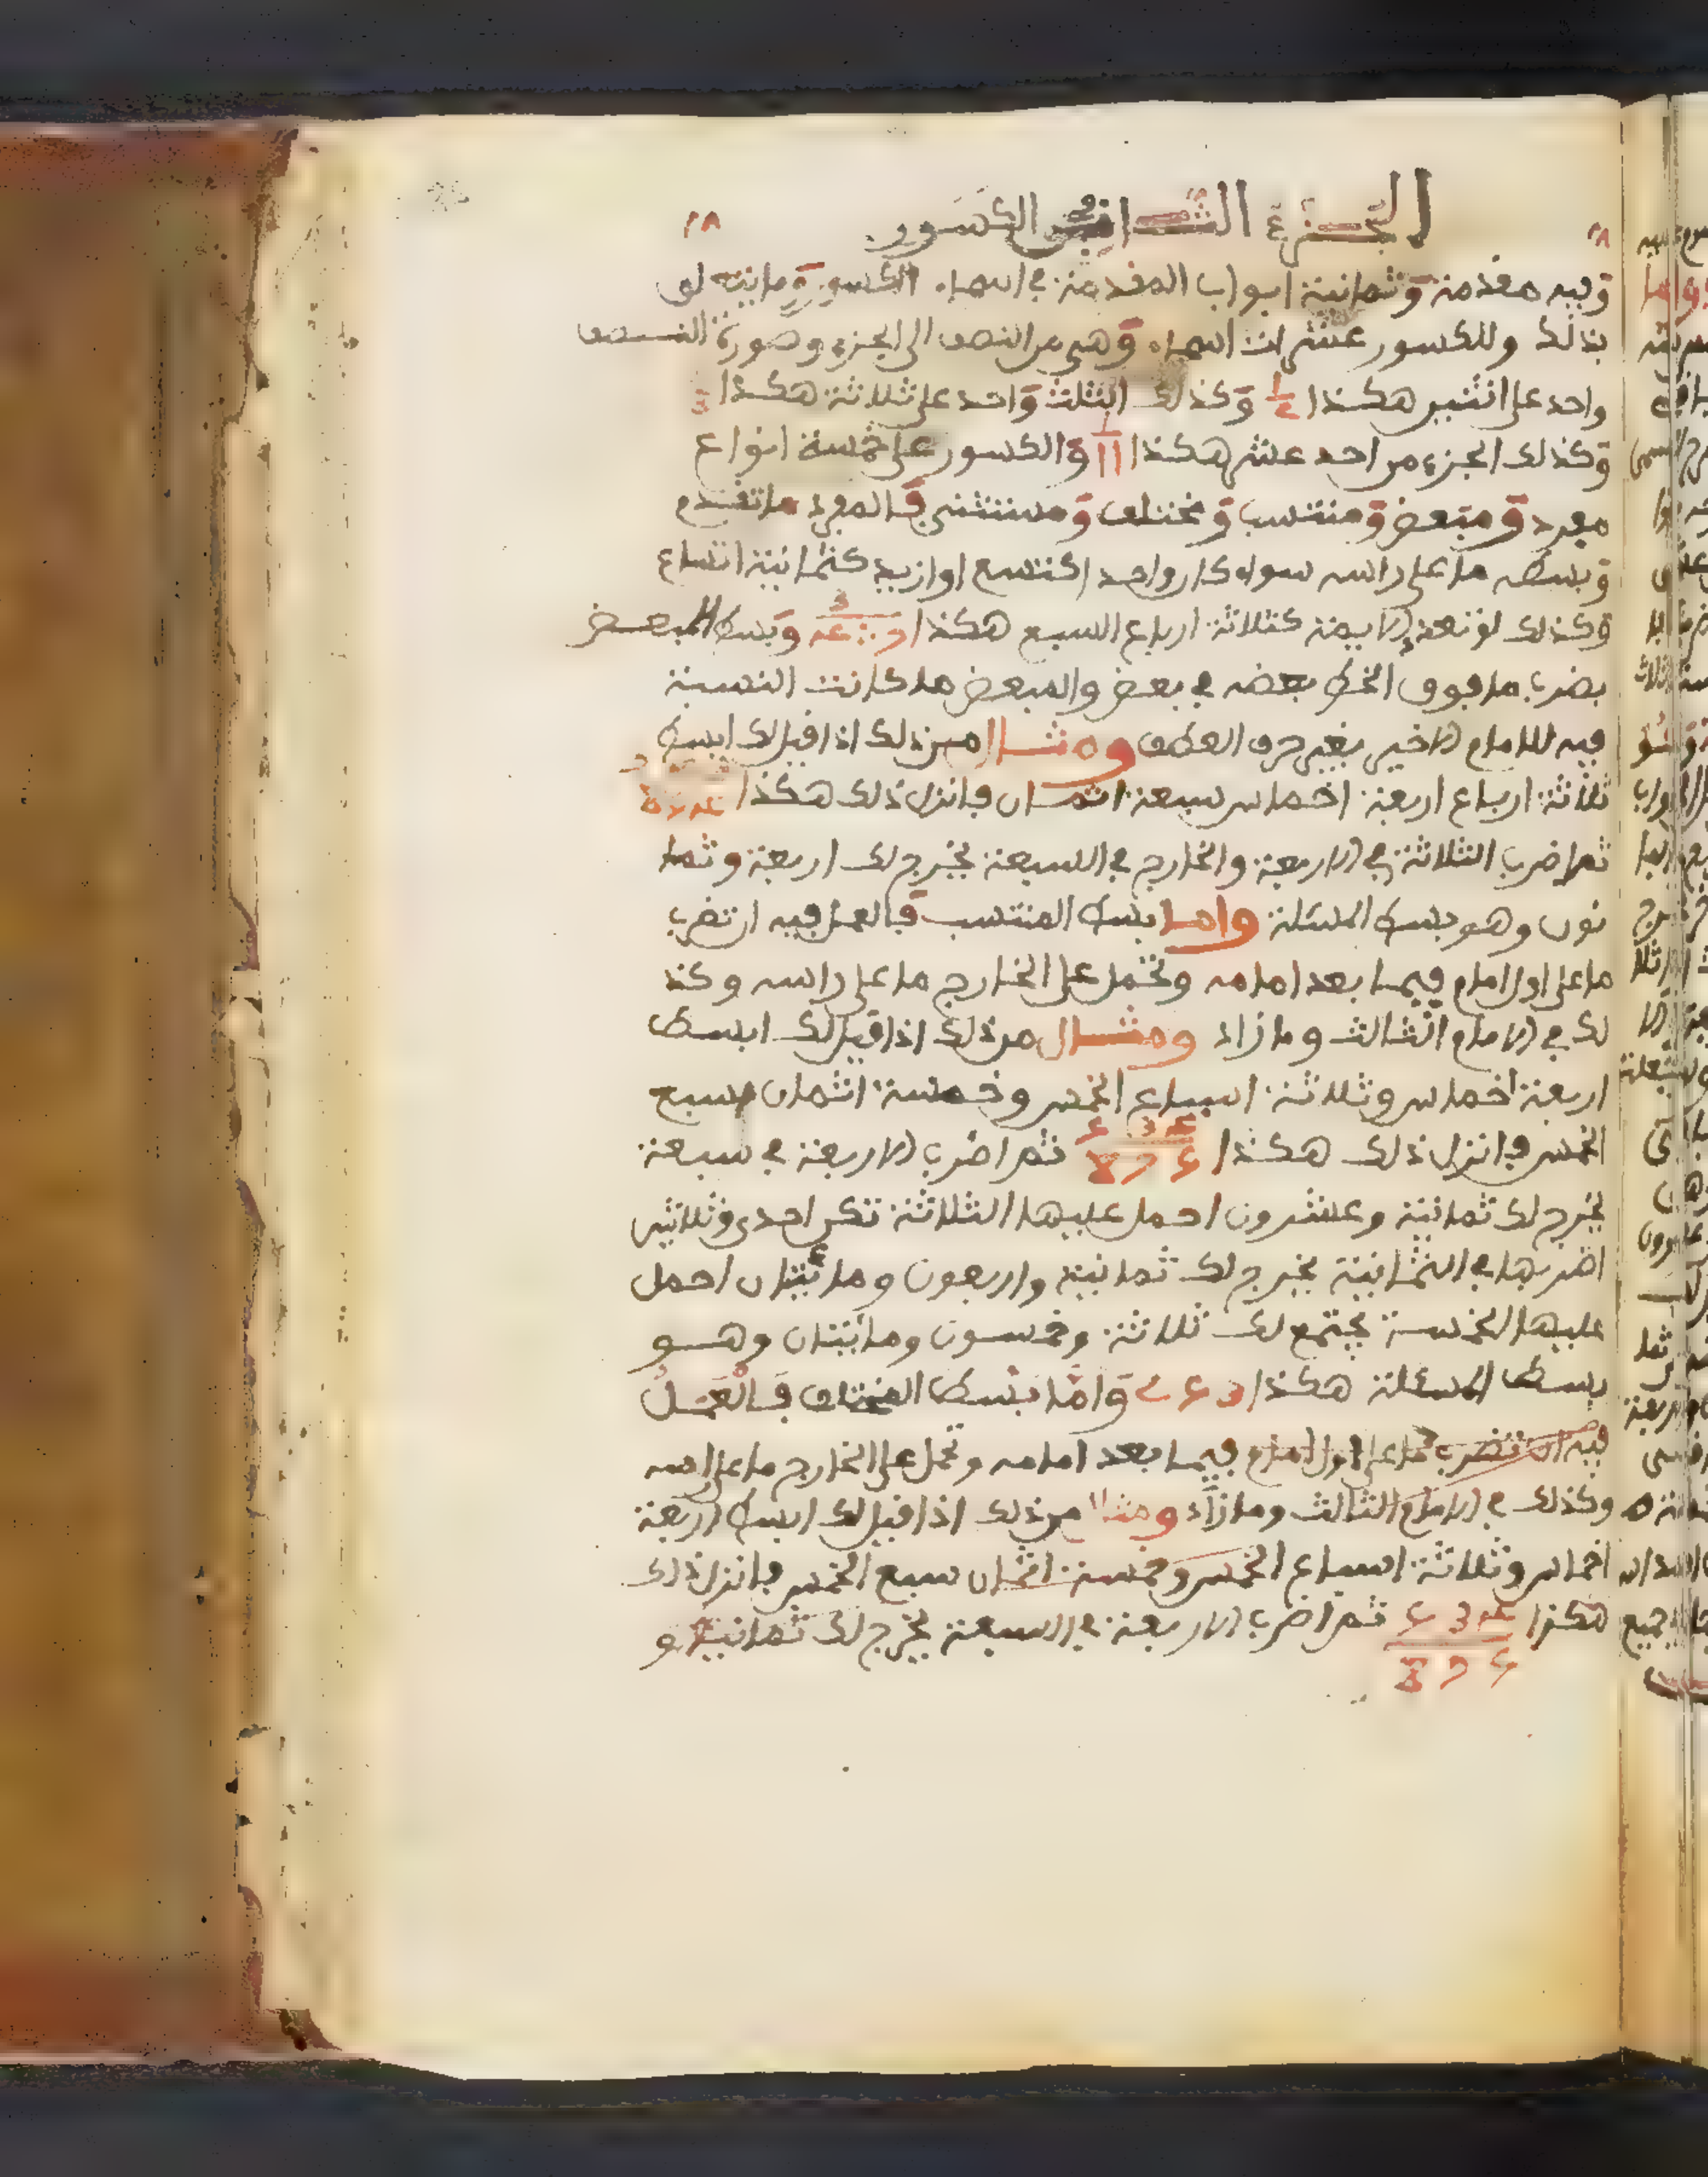 الجزء الثاني في الكسور
وفيه مقدمة وثمانية ابواب المقدمة في اسماء الكسور وما يتعلق
بذلك وللكسور عشرات اسماء وهي من النصف الى الجزء وصورة النصف
واحد على اثنين هكذا 1/2 وكذلك الثلث واحد على ثلاثة هكذا 3
وكذلك الجزء من احد عشر هكذا 1/11 والكسور على خمسة انواع
مفرد ومبعض ومنتسب ومختلف ومستثنى فالمفرد ما تقدم
وبسطه ما على راسه سواء كان واحد اكتسع او ازيد كثمانية اتساع
وكذلك لو تعددت الايمة كثلاثة ارباع السبع هكذا وبسط المبعض
بضرب ما فوق الخط بعضه في بعض والمبعض ما كانت النسبة
فيه للامام الاخير بغير حرف العطف ومثال من ذلك اذا قيل لك ابسط
ثلاثة ارباع اربعة اخماس سبعة اثمان فانزل ذلك هكذا
ثم اضرب الثلاثة في الاربعة والخارج في السبعة يخرج لك اربعة وثما
نون وهو بسط المسئلة واما بسط المنتسب فالعمل فيه ان تضرب
ما على اول امام فيما بعد امامه وتحمل على الخارج ما على راسه وكذ
لك في الامام الثالث وما زاد ومثال من ذلك اذا قيل لك ابسط
اربعة اخماس وثلاثة اسباع الخمس وخمسة اثمان سبع
الخمس فانزل ذلك هكذا ثم اضرب الاربعة في سبعة
يخرج لك ثمانية وعشرون احمل عليها الثلاثة تكن احدى وثلاثين
اضربها في الثمانية يخرج لك ثمانية واربعون ومائتان احمل
عليها الخمسة يجتمع لك ثلاثة وخمسون ومائتان وهو
بسط المسئلة هكذا واما بسط المختلف فالعمل
فيه ان تضرب ما على اول امام فيما بعد امامه وتحمل على الخارج ما على راسه
وكذلك في الامام الثالث وما زاد ومثال من ذلك اذا قيل لك ابسط اربعة
اخماس وثلاثة اسباع الخمس وخمسة اثمان سبع الخمس فانزل ذلك
هكذا ثم اضرب الاربعة في السبعة يخرج لك ثمانية و